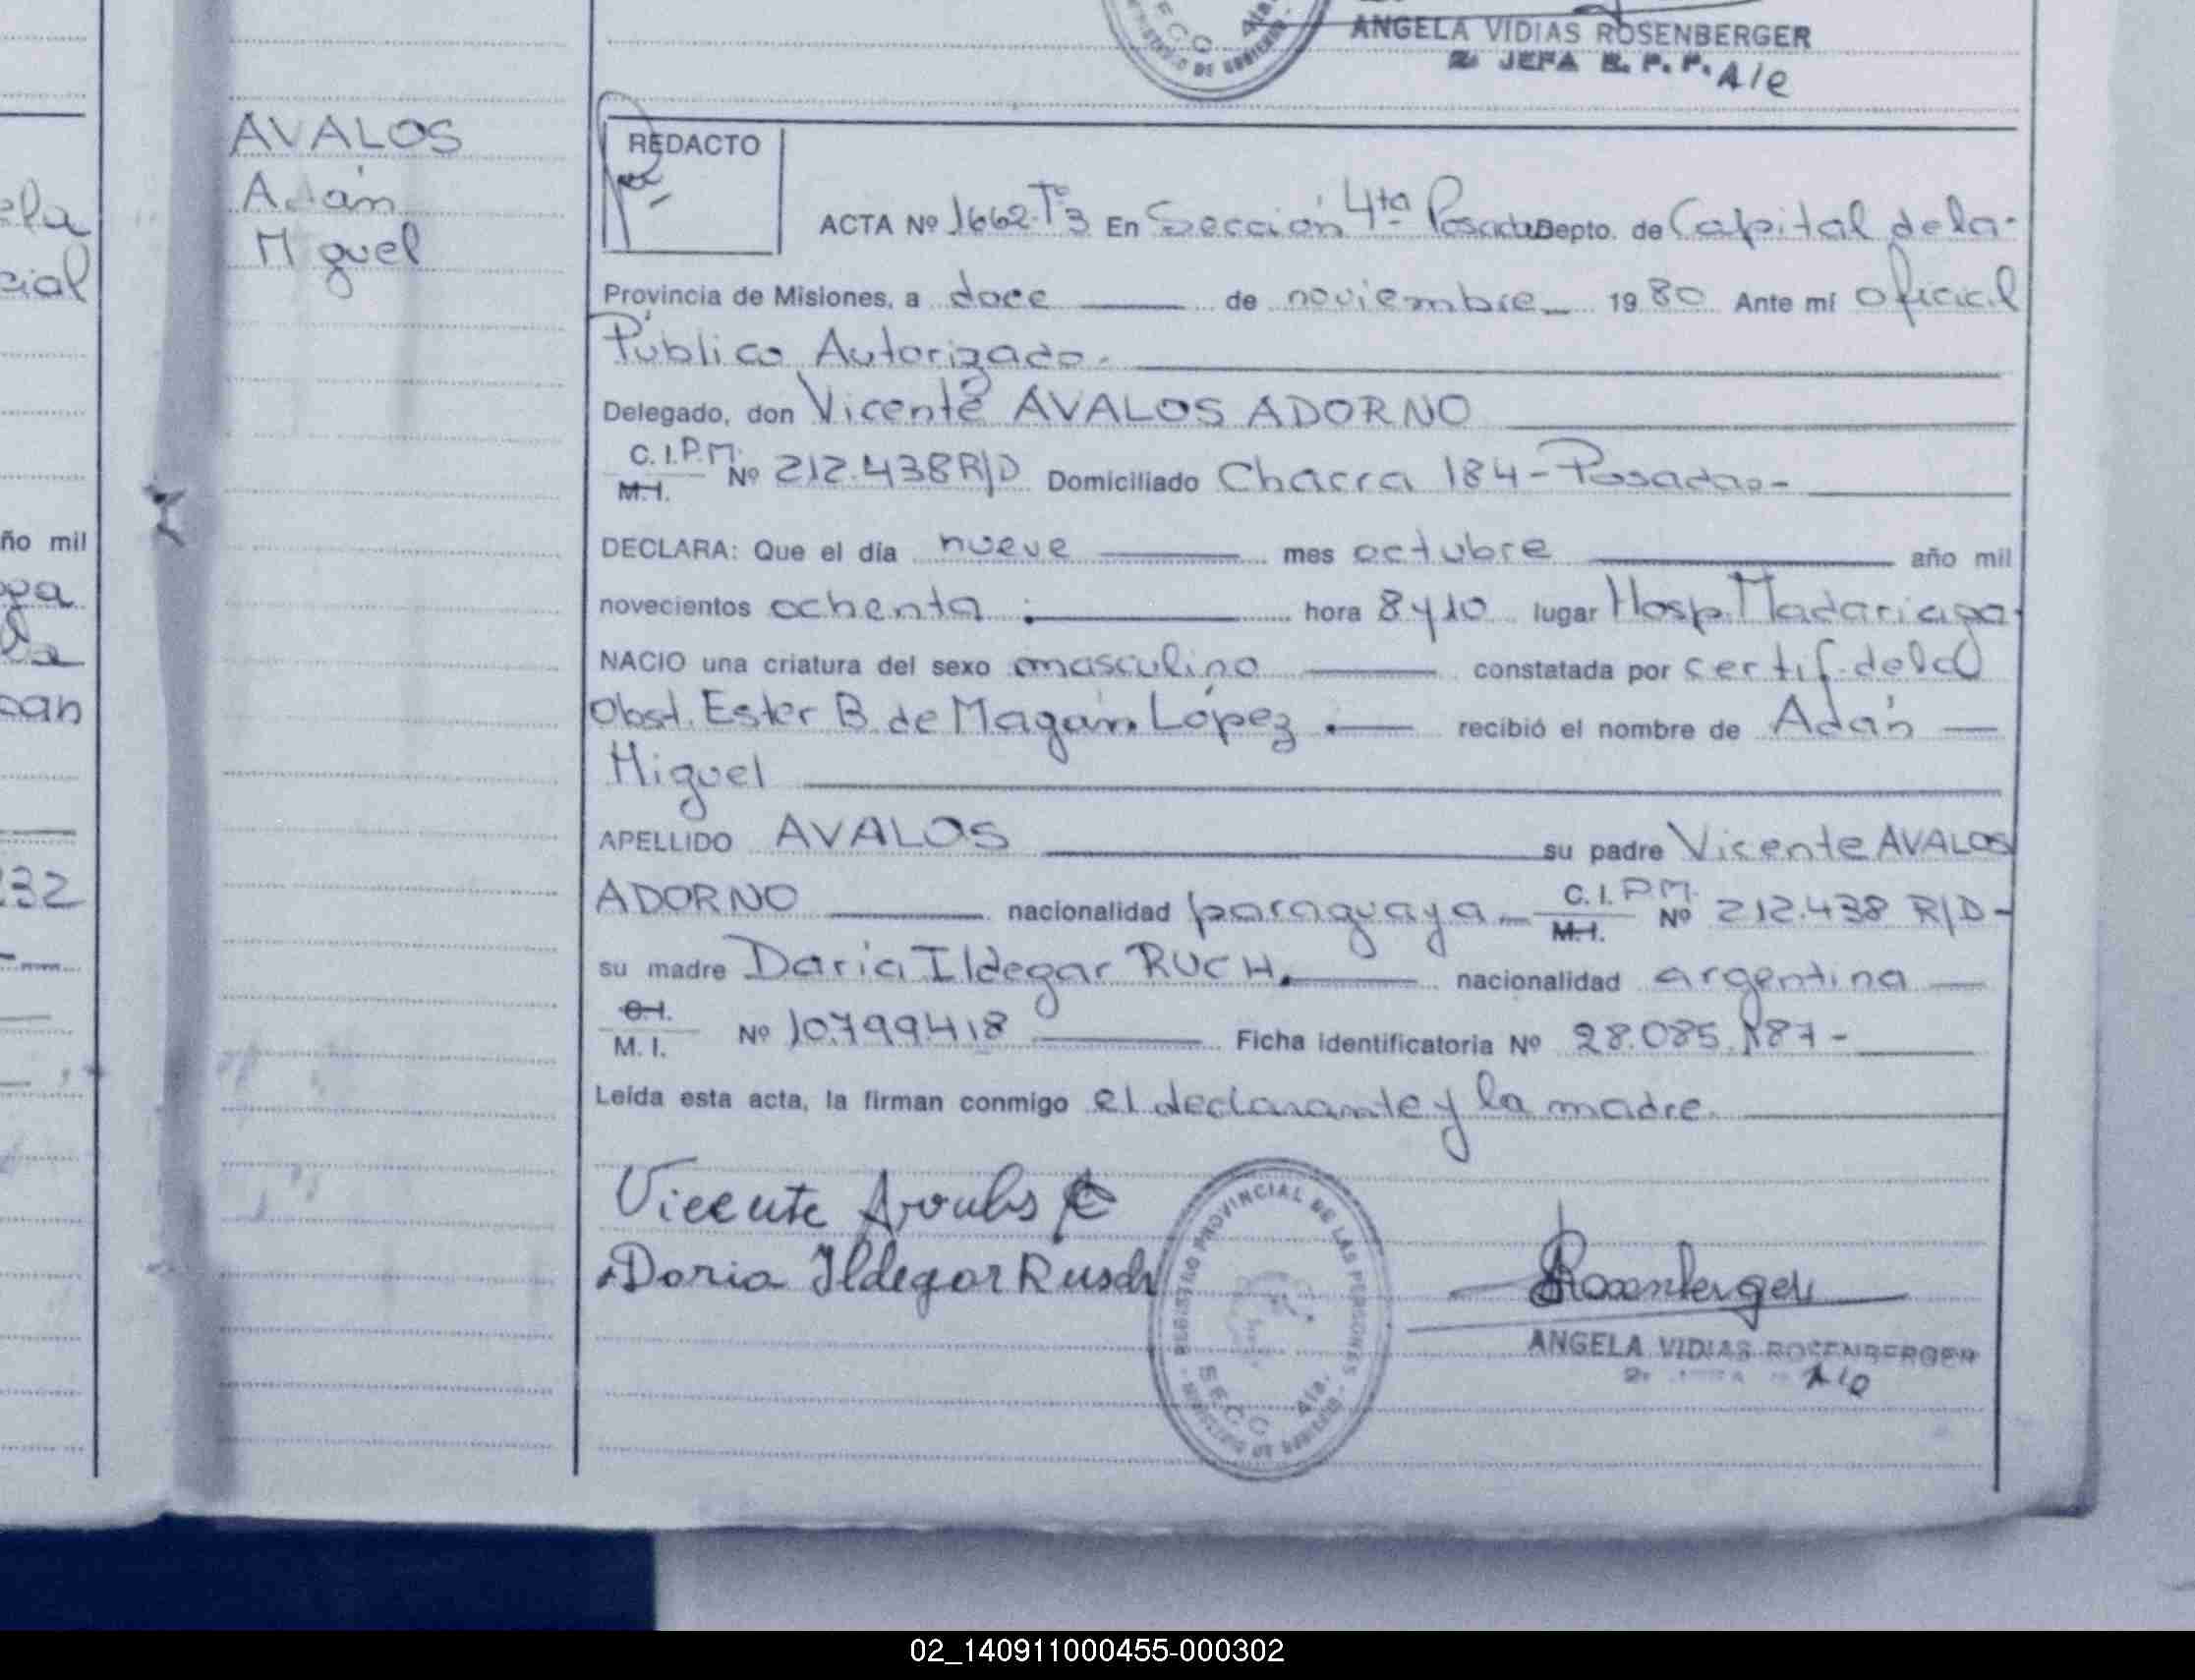 SECC 4ta.
MINISTERIO DE GOBIERNO
ANGELA VIDIAS ROSENBERGER
2ª JEFA R. P. P. A/c
ela
cial
ño mil
la
can
232
AVALOS
Adán
Miguel
REDACTO
ACTA Nº 1662-Tº3 En Sección 4ta Posadas Depto. de Capital de la-
Provincia de Misiones, a doce de noviembre 1980 Ante mí oficial
Público Autorizado.-
Delegado, don Vicente AVALOS ADORNO
C.I.P.M. M.I. Nº 212.438 R/D Domiciliado Chacra 184-Posadas-
DECLARA: Que el día nueve mes octubre año mil
novecientos ochenta. hora 8 y 10 lugar Hosp. Madariaga.
NACIO una criatura del sexo masculino constatada por certif. de la
Obst. Ester B. de Magán López. recibió el nombre de Adán
Miguel
APELLIDO AVALOS su padre Vicente AVALOS
ADORNO nacionalidad paraguaya C.I.P.M. M.I. Nº 212.438 R/D-
su madre Daria Ildegar RUCH. nacionalidad argentina
C.I. M. I. Nº 10.799.418 Ficha identificatoria Nº 28.085.187-
Leída esta acta, la firman conmigo el declarante y la madre.
Vicente Avalos
Doria Ildegar Rusch
REGISTRO PROVINCIAL DE LAS PERSONAS
SECC. 4ta.
MINISTERIO DE GOBIERNO
Rosenberger
ANGELA VIDIAS ROSENBERGER
A/c
02_140911000455-000302